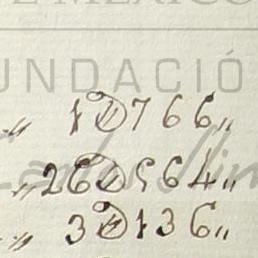 E MÉXICO
FUNDACIÓ
„ 1D766„
„26D564„
„ 3D136„